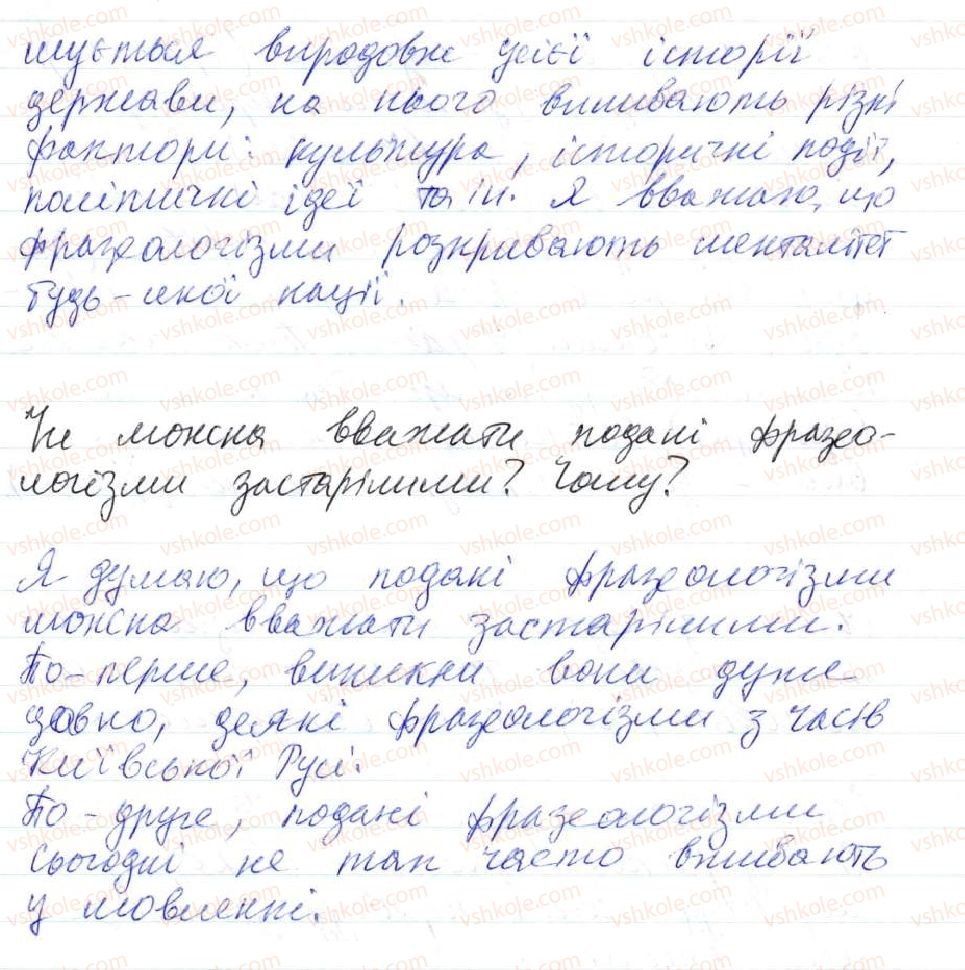 шується впродовж усієї історії
держави, на нього впливають різні
фактори: культура, історичні події,
політичні ідеї та ін. Я вважаю, що
фразеологізми розкривають менталітет
будь-якої нації.
Чи можна вважати подані фразео-
логізми застарілими? Чому?
Я думаю, що подані фразеологізми
можна вважати застарілими.
По-перше, виникли вони дуже
давно, деякі фразеологізми з часів
Київської Русі.
По-друге, подані фразеологізми
сьогодні не так часто вживають
у мовленні.